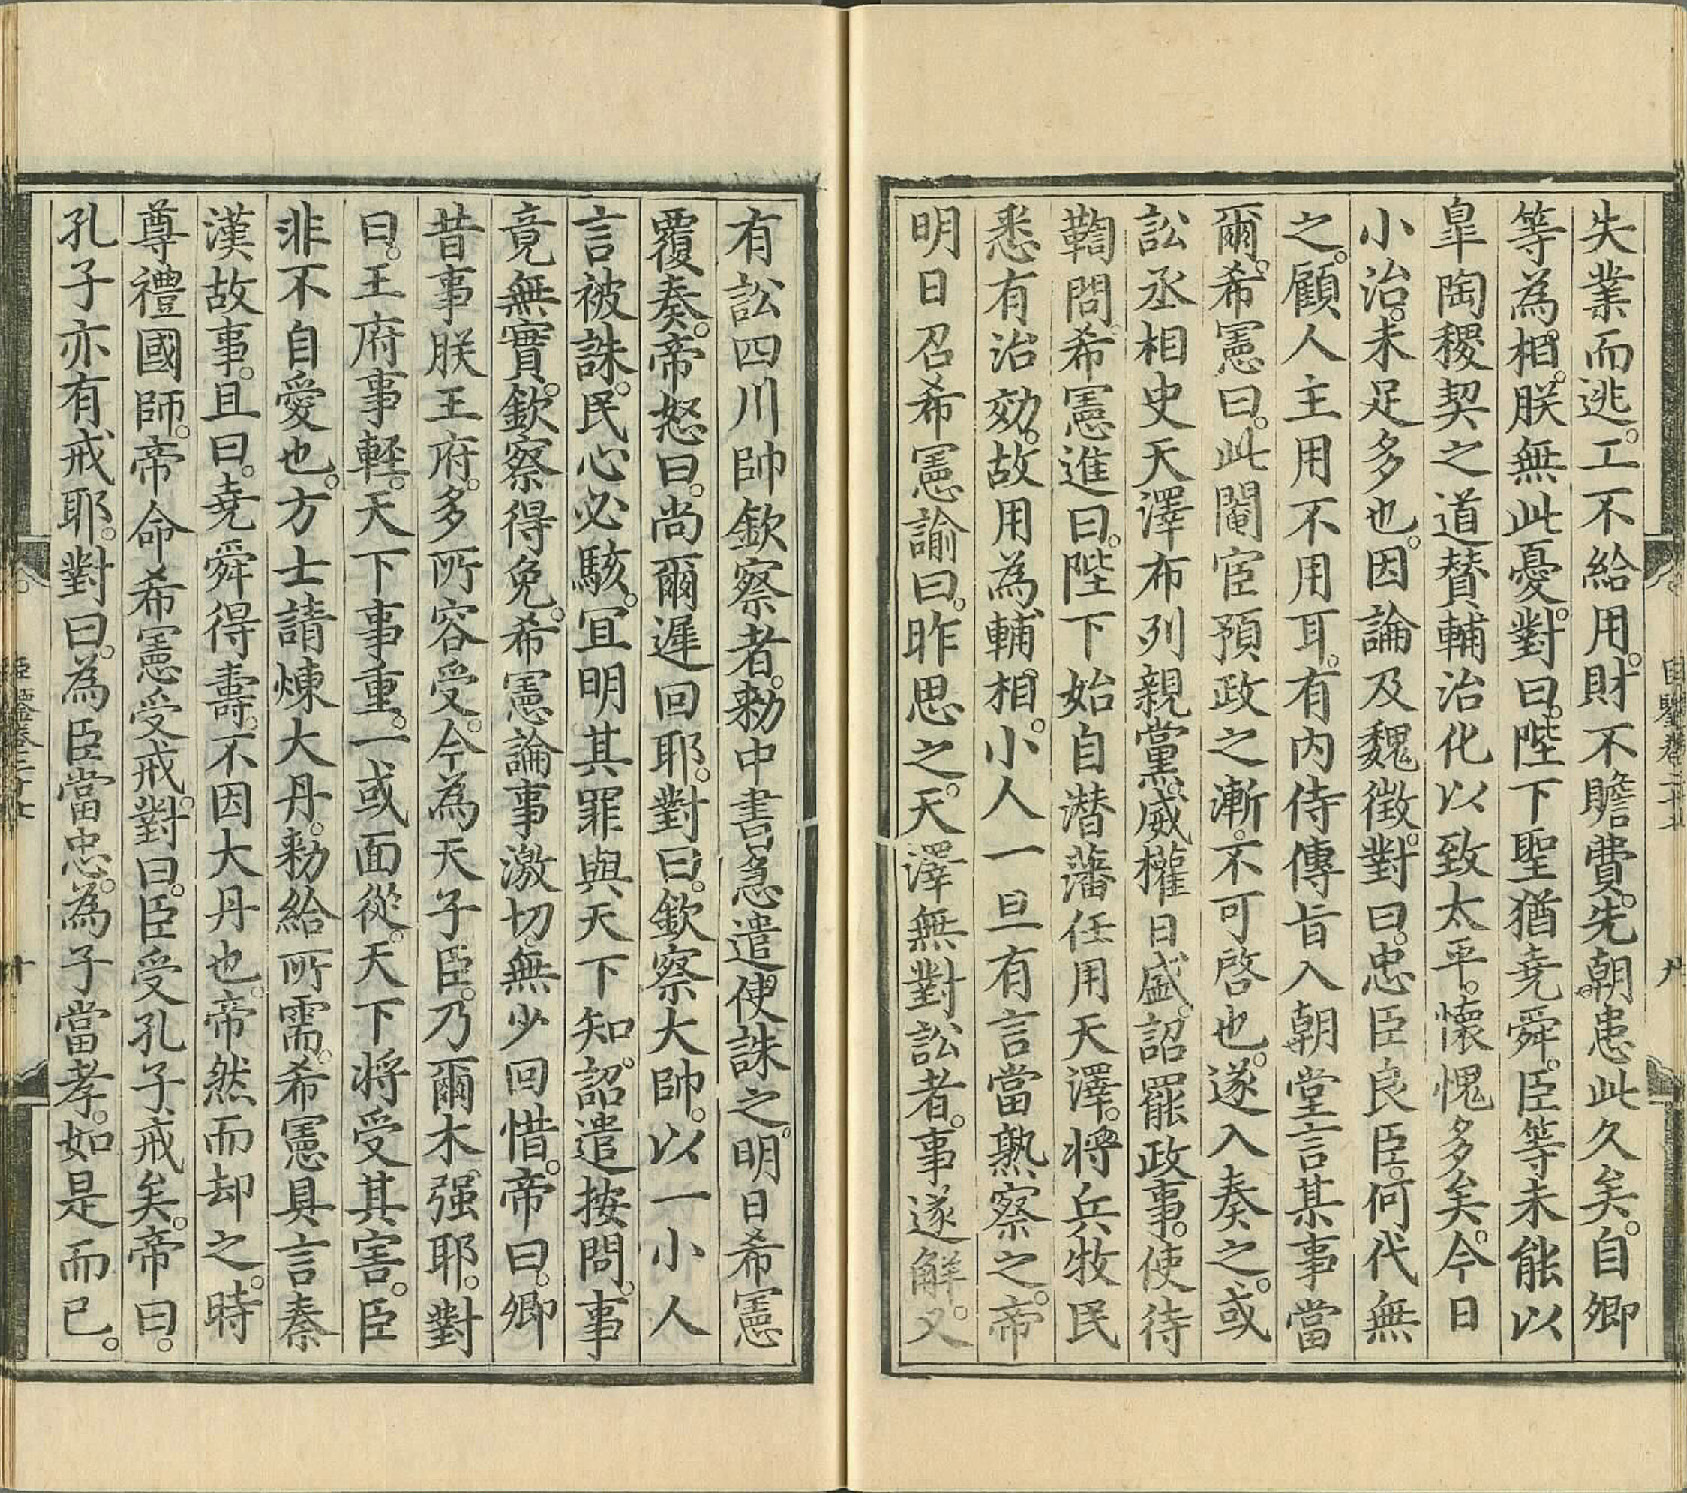 失業而逃。工不給用。財不贍費。先朝患此久矣。自卿
等為相。朕無此憂。對曰。陛下聖猶堯舜。臣等未能以
皐陶稷契之道。賛輔治化以致太平。懷愧多矣。今日
小治。未足多也。因論及魏徵。對曰。忠臣良臣。何代無
之。顧人主用不用耳。有內侍傳旨入朝堂言某事當
爾。希憲曰。此閹宦預政之漸。不可啓也。遂入奏之。或
訟丞相史天澤布列親黨。威權日盛。詔罷政事。使待
鞫問。希憲進曰。陛下始自潜藩任用天澤。將兵牧民
悉有治効。故用為輔相。小人一旦有言當熟察之。帝
明日召希憲諭曰。昨思之。天澤無對訟者。事遂解。又
有訟四川帥欽察者。勅中書急遣使誅之。明日希憲
覆奏。帝怒曰。尚爾遲回耶。對曰。欽察大帥。以一小人
言被誅。民心必駭。冝明其罪與天下知。詔遣按問。事
竟無實。欽察得免。希憲論事激切。無少回惜。帝曰。卿
昔事朕王府。多所容受。今為天子臣。乃爾木强耶。對
曰。王府事軽。天下事重。一或面從。天下將受其害。臣
非不自愛也。方士請煉大丹。勅給所需。希憲具言秦
漢故事。且曰。堯舜得壽。不因大丹也。帝然而却之。時
尊禮國師。帝命希憲受戒。對曰。臣受孔子戒矣。帝曰。
孔子亦有戒耶。對曰。為臣當忠。為子當孝。如是而已。